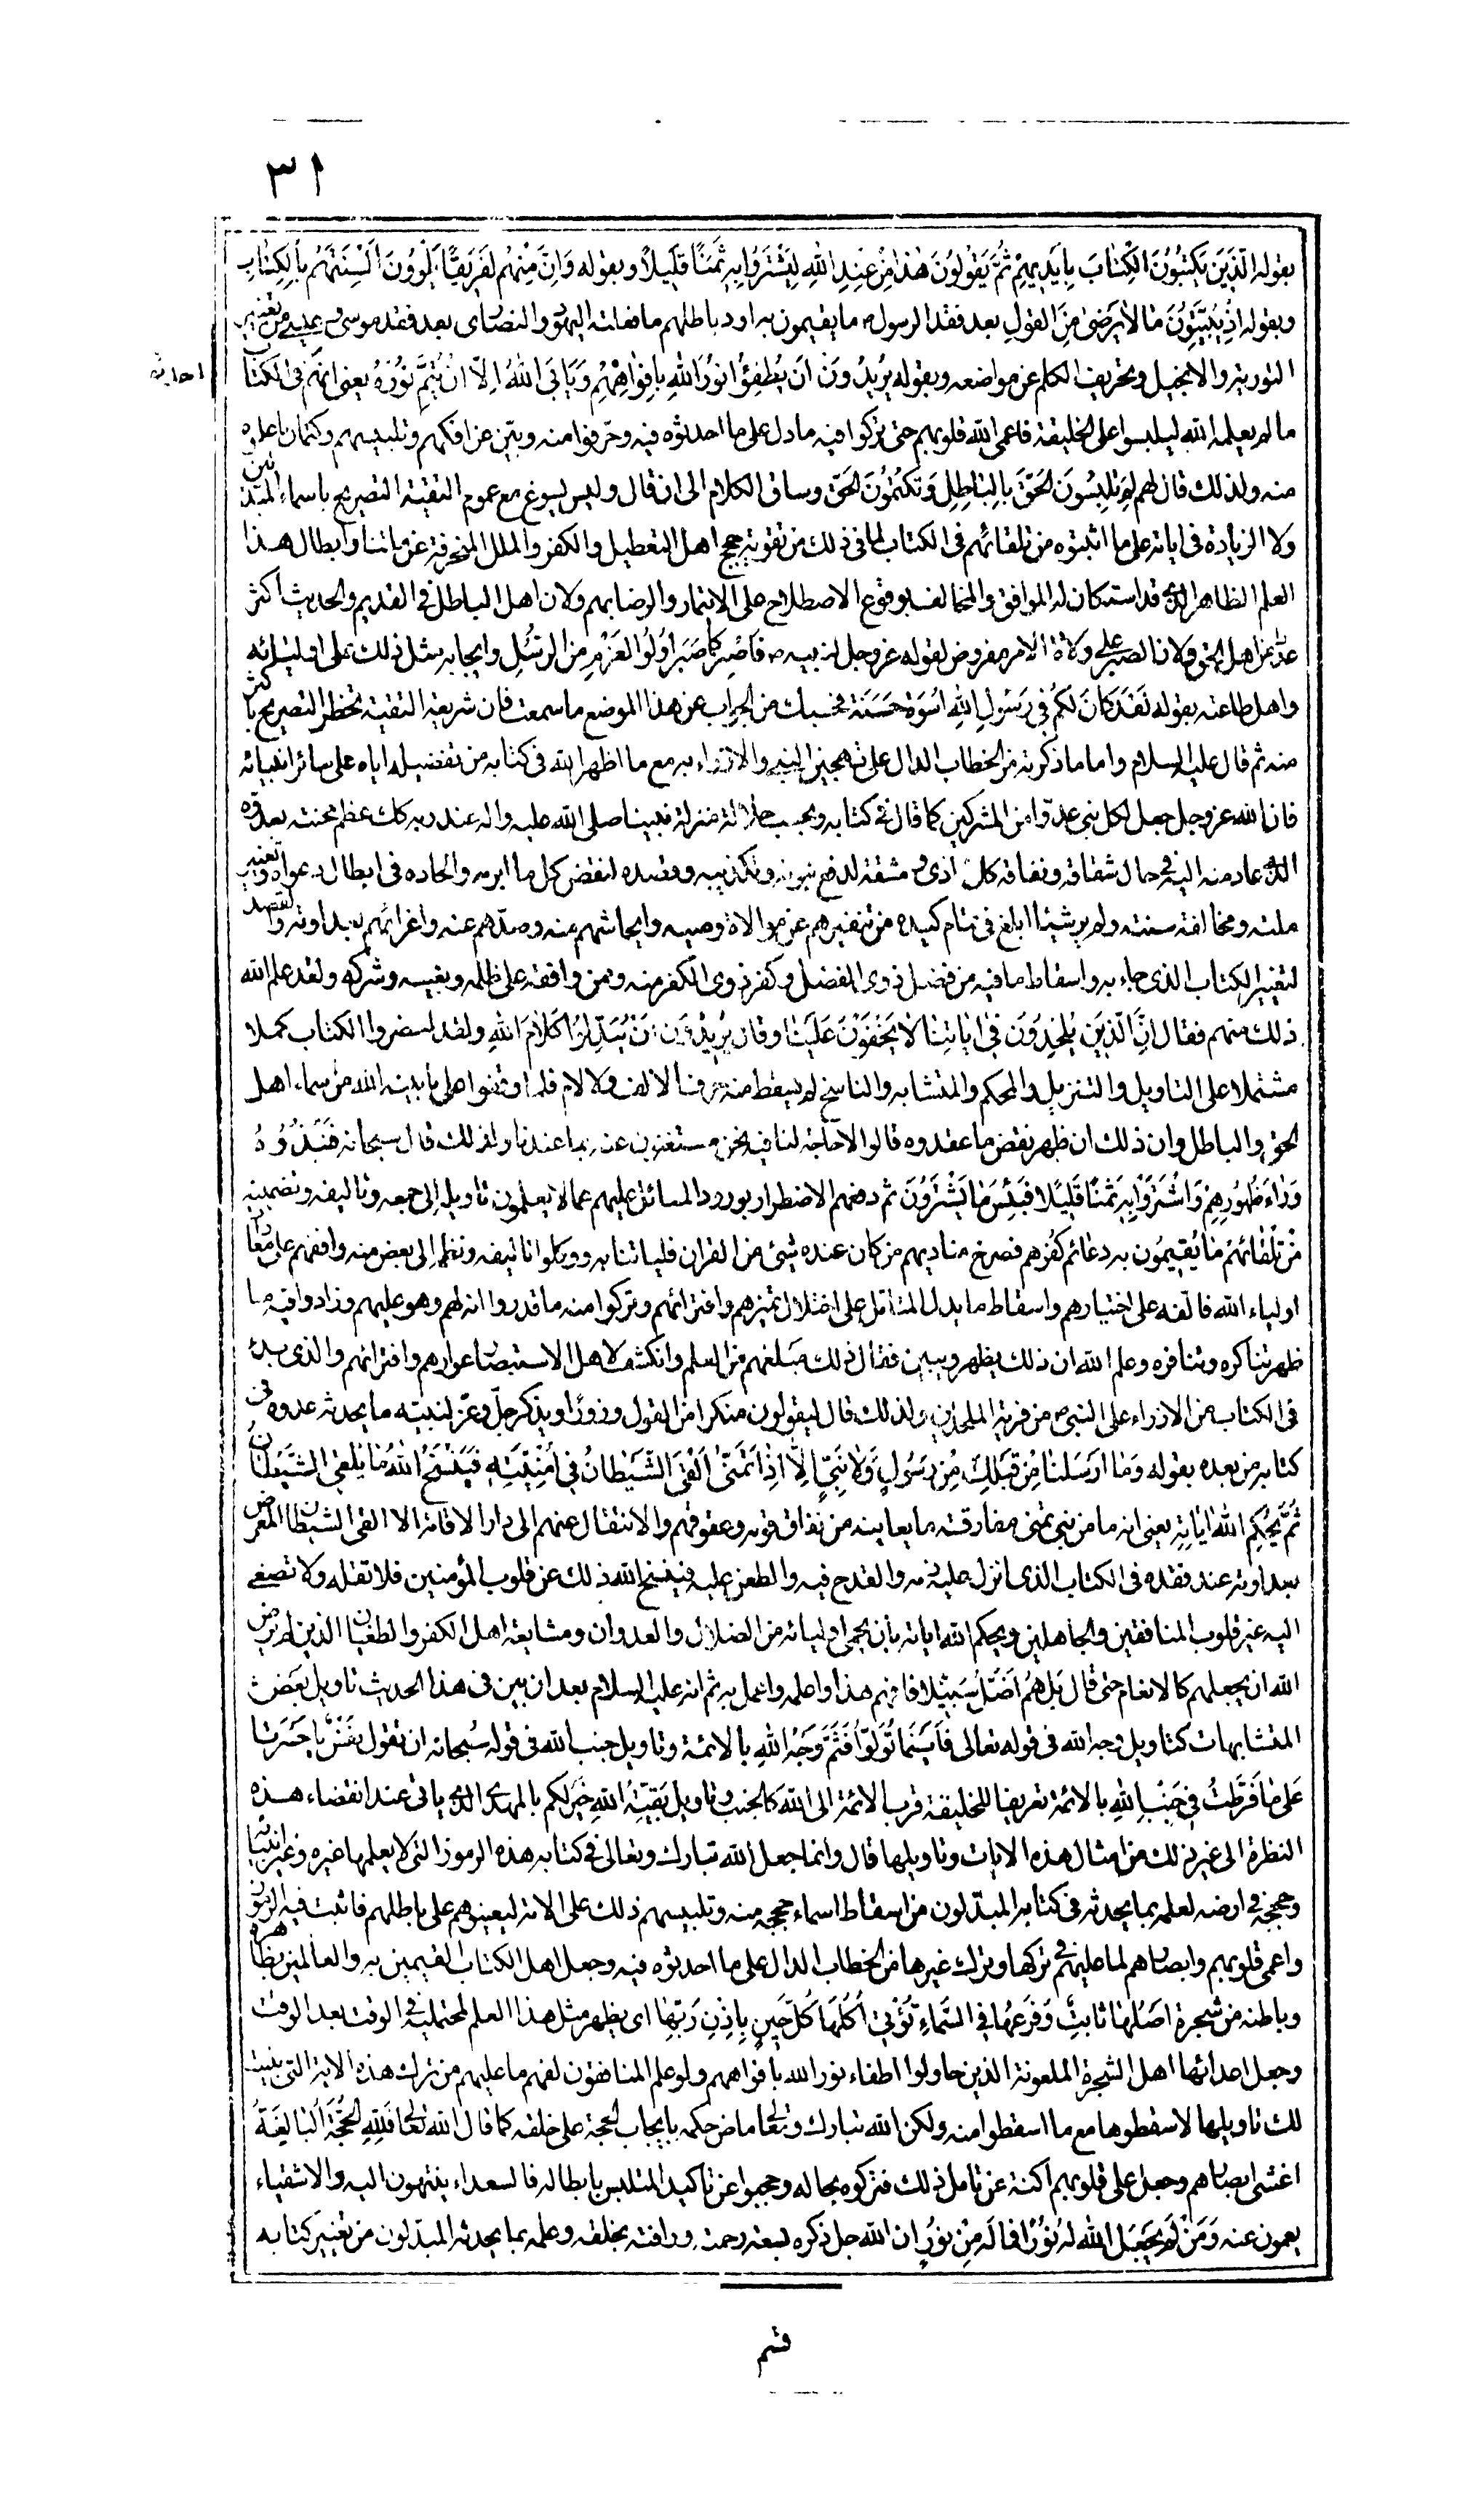 ٣١
بقوله الَّذِينَ يَكْتُبُونَ الْكِتَابَ بِاَيْدِيهِمْ ثُمَّ يَقُولُونَ هٰذَا مِنْ عِنْدِ اللهِ لِيَشْتَرُوا بِهِ ثَمَنًا قَلِيلًا وبقوله وَاِنَّ مِنْهُمْ لَفَرِيقًا يَلْوُونَ اَلْسِنَتَهُمْ بِالْكِتَابِ
وبقوله اِذْ يُبَيِّتُونَ مَا لَا يَرْضَى مِنَ الْقَوْلِ بعد فقد الرسول ص ما يقيمون به اود باطلهم ما فعلته اليهود والنصارى بعد فقد موسى وعيسى من تغيير
التورية والانجيل وتحريف الكلم عن مواضعه وبقوله يُرِيدُونَ اَنْ يُطْفِئُوا نُورَ اللهِ بِاَفْوَاهِهِمْ وَيَاْبَى اللهُ اِلَّا اَنْ يُتِمَّ نُورَهُ يعنى انهم فى الكتاب
ما لم يقله الله ليلبسوا على الخليقة فاعمى الله قلوبهم حتى تركوا فيه ما دل على ما احدثوه فيه وحرفوا منه وبين عن افكهم وتلبيسهم وكتمان ما علموه
منه ولذلك قال لهم لِمَ تَلْبِسُونَ الْحَقَّ بِالْبَاطِلِ وَتَكْتُمُونَ الْحَقَّ وساق الكلام الى ان قال وليس يسوغ مع عموم التقية التصريح باسماء المبدلين
ولا الزيادة فى اياته على ما اثبتوه من تلقائهم فى الكتاب لما فى ذلك من تقوية حجج اهل التعطيل والكفر والملل المنحرفة عن ملتنا وابطال هذا
العلم الظاهر الذى قد استكان له الموافق والمخالف بوقوع الاصطلاح على الايتمار والرضا بهم ولان اهل الباطل فى القديم والحديث اكثر
عددا من اهل الحق ولان الصبر على ولاة الامر مفروض لقوله عز وجل لنبيه ص فَاصْبِرْ كَمَا صَبَرَ اُولُوا الْعَزْمِ مِنَ الرُّسُلِ وايجابه مثل ذلك على اوليائه
واهل طاعته بقوله لَقَدْ كَانَ لَكُمْ فِى رَسُولِ اللهِ اُسْوَةٌ حَسَنَةٌ فحسبك من الجواب عن هذا الموضع ما سمعت فان شريعة التقية تحظر التصريح باكثر
منه ثم قال عليه السلام واما ما ذكرته من الخطاب الدال على تهجين النبى والازراء به مع ما اظهر الله فى كتابه من تفضيله اياه على سائر انبيائه
فان الله عز وجل جعل لكل نبى عدوا من المشركين كما قال فى كتابه وبحسب جلالة منزلة نبينا صلى الله عليه واله عند ربه كك عظم محنته بعدوه
الذى عاد منه اليه فى حال شقاقه ونفاقه كل اذى ومشقة لدفع نبوته وتكذيبه وقصده لنقض كل ما ابرمه والحاده فى ابطال دعواه وتغيير
ملته ومخالفة سنته ولم ير شيئا ابلغ فى تمام كيده من تنفيرهم عن موالاة وصيه وايحاشهم منه وصدهم عنه واغرائهم بعداوته والقصد
لتغيير الكتاب الذى جاء به واسقاط ما فيه من فضل ذوى الفضل وكفر ذوى الكفر منه وممن وافقه على ظلمه وبغيه وشركه ولقد علم الله
ذلك منهم فقال اِنَّ الَّذِينَ يُلْحِدُونَ فِى اٰيَاتِنَا لَا يَخْفَوْنَ عَلَيْنَا وقال يُرِيدُونَ اَنْ يُبَدِّلُوا كَلَامَ اللهِ ولقد احضروا الكتاب كملا
مشتملا على التاويل والتنزيل والمحكم والمتشابه والناسخ لم يسقط منه حرف الالف ولا لام فلما وقفوا على ما بينه الله من اسماء اهل
الحق والباطل وان ذلك ان ظهر نقض ما عقدوه قالوا لا حاجة لنا فيه نحن مستغنون عنه بما عندنا ولذلك قال سبحانه فَنَبَذُوهُ
وَرَاءَ ظُهُورِهِمْ وَاشْتَرَوْا بِهِ ثَمَنًا قَلِيلًا فَبِئْسَ مَا يَشْتَرُونَ ثم دفعهم الاضطرار بورود المسائل عليهم عما لا يعلمون تاويله الى جمعه وتاليفه وتضمينه
مِنْ تلقائهم ما يُقيمُون به دعائم كفرهم فصرخ مناديهم من كان عنده شئ من القران فلياتنا به ووكلوا تاليفه ونظمه الى بعض من وافقهم على معاداة
اولياء الله فالفه على اختيارهم واسقاط ما يدل المتامل على اختلال تميزهم وافترائهم وتركوا منه ما قدروا انه لهم وهو عليهم وزادوا فيه ما
ظهر تناكره وتنافره وعلم الله ان ذلك يظهر ويبين فقال ذلك مبلغهم من العلم وانكشف لاهل الاستبصار عوارهم وافتراؤهم والذى بدئ
فى الكتاب من الازراء على النبى ص من فرية الملحدين ولذلك قال ليقولون منكرا من القول وزورا ويذكر جل وعز لنبيه ما يحدثه عدوه فى
كتابه من بعده بقوله وَمَا اَرْسَلْنَا مِنْ قَبْلِكَ مِنْ رَسُولٍ وَلَا نَبِىٍّ اِلَّا اِذَا تَمَنَّى اَلْقَى الشَّيْطَانُ فِى اُمْنِيَّتِهِ فَيَنْسَخُ اللهُ مَا يُلْقِى الشَّيْطَانُ
ثُمَّ يُحْكِمُ اللهُ اٰيَاتِهِ يعنى انه ما من نبى تمنى مفارقته ما يعاينه من نفاق قومه وعقوقهم والانتقال عنهم الى دار الاقامة الا القى الشيطان المعرض
بعداوته عند فقده فى الكتاب الذى انزل عليه ذمه والقدح فيه والطعن عليه فينسخ الله ذلك عن قلوب المؤمنين فلا تقبله ولا تصغى
اليه غير قلوب المنافقين والجاهلين ويحكم الله اياته بان يحمى اوليائه من الضلال والعدوان ومشايعة اهل الكفر والطغيان الذين لم يرض
الله ان يجعلهم كالانعام حتى قال بَلْ هُمْ اَضَلُّ سَبِيلًا فافهم هذا واعلمه واعمل به ثم انه عليه السلام بعد ان بين فى هذا الحديث تاويل بعض
المتشابهات كتاويل وجه الله فى قوله تعالى فَاَيْنَمَا تُوَلُّوا فَثَمَّ وَجْهُ اللهِ بالائمة وتاويل جنب الله فى قوله سُبحانه ان تقول نفسٌ يا حَسْرَتَا
عَلَى مَا فَرَّطْتُ فِى جَنْبِ اللهِ بالائمة تعريفا للخليقة قرب الائمة الى الله كالجنب وتاويل بَقِيَّةُ اللهِ خَيْرٌ لَكُمْ بالمهدى الذى ياتى عند انقضاء هذه
النظرة الى غير ذلك من امثال هذه الايات وتاويلها قال وانما جعل الله تبارك وتعالى فى كتابه هذه الرموز التى لا يعلمها غيره وغير انبيائه
وحججه فى ارضه لعلمه بما يحدثه فى كتابه المبدلون من اسقاط اسماء حججه منه وتلبيسهم ذلك على الامة ليعينوهم على باطلهم فاثبت فيه الرموز
واعمى قلوبهم وابصارهم لما عليهم فى تركها وترك غيرها من الخطاب الدال على ما احدثوه فيه وجعل اهل الكتاب القيمين به والعالمين بظاهره
وباطنه من شجرة اَصْلُهَا ثَابِتٌ وَفَرْعُهَا فِى السَّمَاءِ تُؤْتِى اُكُلَهَا كُلَّ حِينٍ بِاِذْنِ رَبِّهَا اى يظهر مثل هذا العلم لمحتمليه فى الوقت بعد الوقت
وجعل اعدائها اهل الشجرة الملعونة الذين حاولوا اطفاء نور الله بافواههم ولو علم المنافقون لعنهم ما عليهم من ترك هذه الاية التى بينت
لك تاويلها لاسقطوها مع ما اسقطوا منه ولكن الله تبارك وتعالى ماض حكمه بايجاب الحجة على خلقه كما قال الله تعالى فَلِلّٰهِ الْحُجَّةُ الْبَالِغَةُ
اغشى ابصارهم وجعل على قلوبهم اكنة عن تامل ذلك فتركوه بحاله وحجبوا عن تاكيد الملتبس بابطاله فالسعداء ينتبهون اليه والاشقياء
يعمون عنه وَمَنْ لَمْ يَجْعَلِ اللهُ لَهُ نُورًا فَمَا لَهُ مِنْ نُورٍ ان الله جل ذكره لسعة رحمته ورافته بخلقه وعلمه بما يحدثه المبدلون من تغيير كتابه
قسم